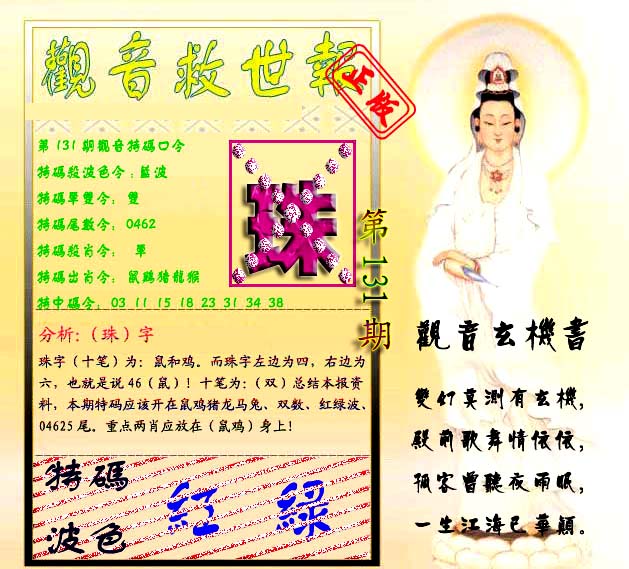 觀音救世報
正传
第131期觀音特碼口令
特碼殺波色令:藍波
特碼單雙令: 雙
特碼尾數令: 0462
特碼殺肖令: 單
特碼出肖令: 鼠鷄猪龍猴
特中碼令: 03 11 15 18 23 31 34 38
珠
第131期
分析:(珠)字
珠字(十笔)为:鼠和鸡。而珠字左边为四,右边为
六,也就是说46(鼠)!十笔为:(双)总结本报资
料,本期特码应该开在鼠鸡猪龙马兔、双数、红绿波、
04625尾。重点两肖应放在(鼠鸡)身上!
特碼
波色
紅 綠
觀音玄機書
變幻莫測有玄機,
殿前歌舞情依依,
孤客曾聽夜雨眠,
一生江海已華顛。